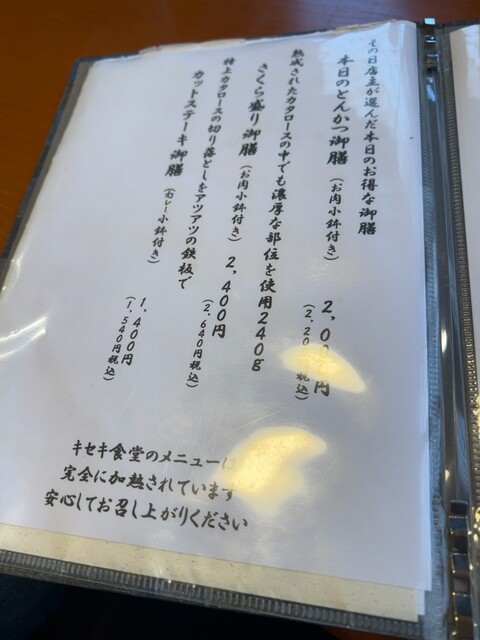 その日店主が選んだ本日のお得な御膳
本日のとんかつ御膳(お肉小鉢付き) 2,0 円
(2,20 税込)
熟成されたカタロースの中でも濃厚な部位を使用240g
さくら盛り御膳(お肉小鉢付き) 2,400円
(2,640円税込)
特上カタロースの切り落としをアツアツの鉄板で
カットステーキ御膳(カレー小鉢付き) 1,400円
(1,540円税込)
キセキ食堂のメニューは
完全に加熱されています
安心してお召し上がりください